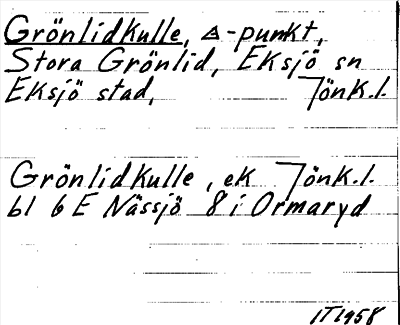 Grönlidkulle, △-punkt,
Stora Grönlid, Eksjö sn
Eksjö stad, Jönk.l.
Grönlidkulle, ek Jönk.l.
bl 6 E Nässjö 8 i Ormaryd
IT1958